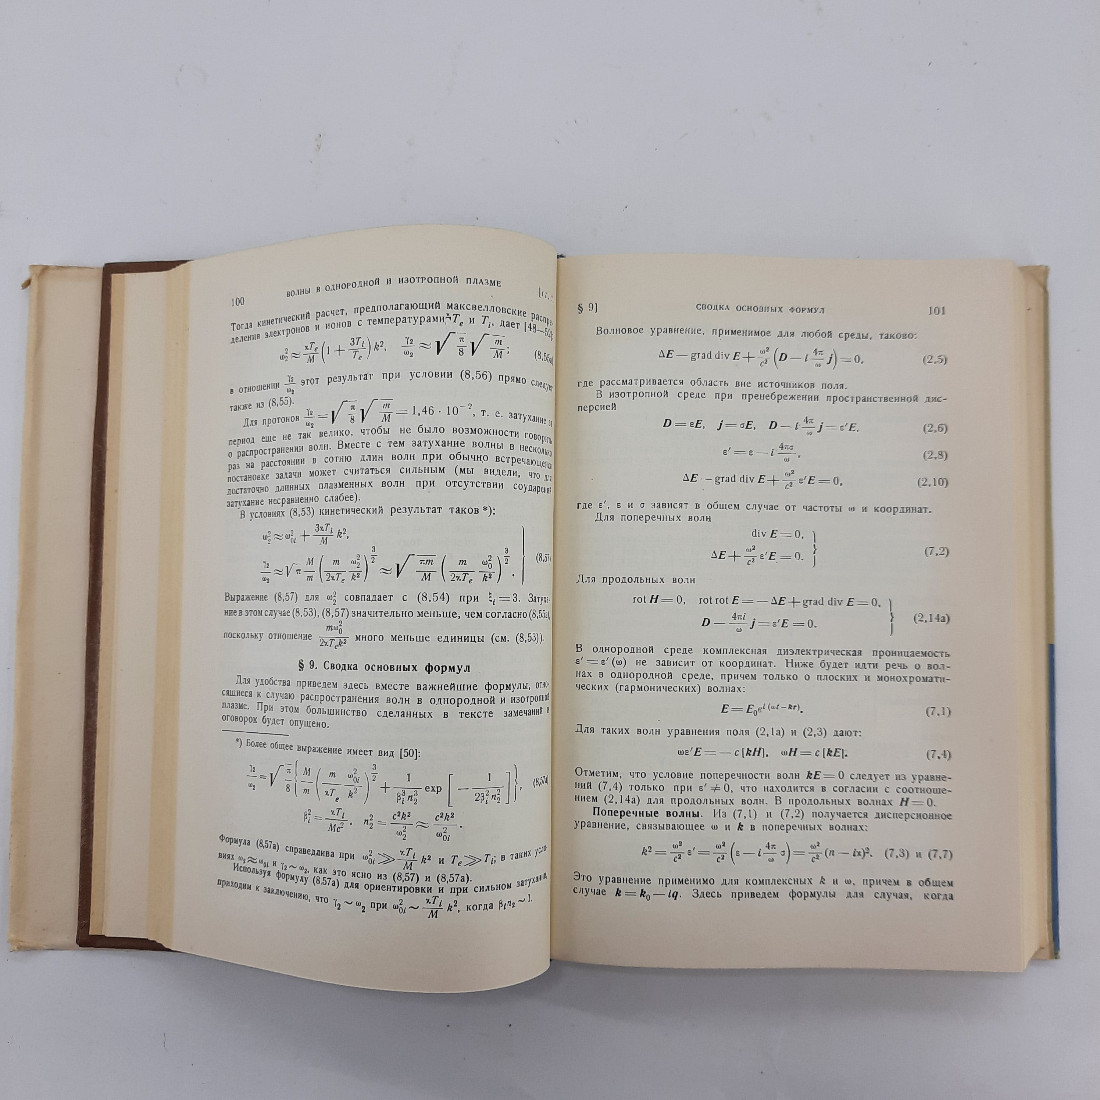 100 ВОЛНЫ В ОДНОРОДНОЙ И ИЗОТРОПНОЙ ПЛАЗМЕ
Тогда кинетический расчет, предполагающий максвелловские
деления электронов и ионов с температурами T_e и T_i, дает [48—
ω₂² ≈ ϰT_e/M (1 + 3T_i/T_e) k², γ₂/ω₂ ≈ √(π/8) √(m/M); (8,56а)
в отношении γ₂/ω₂ этот результат при условии (8,56) прямо следует
также из (8,55).
Для протонов γ₂/ω₂ = √(π/8) √(m/M) = 1,46 · 10⁻², т. е. затухание за
период еще не так велико, чтобы не было возможности говорить
о распространении волн. Вместе с тем затухание волны в несколько
раз на расстоянии в сотню длин волн при обычно встречающейся
постановке задачи может считаться сильным (мы видели, что для
достаточно длинных плазменных волн при отсутствии соударений
затухание несравненно слабее).
В условиях (8,53) кинетический результат таков *):
ω₂² ≈ ω₀ᵢ² + 3ϰT_i/M k²,
γ₂/ω₂ ≈ √π M/m (m/2ϰT_e ω₂²/k²)^(3/2) ≈ √(πm/M) (m/2ϰT_e ω₀²/k²)^(3/2). (8,57)
Выражение (8,57) для ω₂² совпадает с (8,54) при ξ_i = 3. Затуха-
ние в этом случае (8,53), (8,57) значительно меньше, чем согласно (8,55а),
поскольку отношение mω₀²/2ϰT_e k² много меньше единицы (см. (8,53)).
§ 9. Сводка основных формул
Для удобства приведем здесь вместе важнейшие формулы, отно-
сящиеся к случаю распространения волн в однородной и изотропной
плазме. При этом большинство сделанных в тексте замечаний и
оговорок будет опущено.
*) Более общее выражение имеет вид [50]:
γ₂/ω₂ = √(π/8) {M/m (m/ϰT_e ω₀ᵢ²/k²)^(3/2) + 1/(β_i³n₂³) exp [−1/(2β_i²n₂²)]}, (8,57а)
β_i² = ϰT_i/Mc², n₂² = c²k²/ω₂² ≈ c²k²/ω₀ᵢ².
Формула (8,57а) справедлива при ω₀ᵢ² ≫ ϰT_i/M k² и T_e ≫ T_i; в таких усло-
виях ω₂ ≈ ω₀ᵢ и γ₂ ~ ω₂, как это ясно из (8,57) и (8,57а).
Используя формулу (8,57а) для ориентировки и при сильном затухании,
приходим к заключению, что γ₂ ~ ω₂ при ω₀ᵢ² ~ ϰT_i/M k², когда β_i n₂ ~ 1.
§ 9] СВОДКА ОСНОВНЫХ ФОРМУЛ 101
Волновое уравнение, применимое для любой среды, таково:
ΔE — grad div E + ω²/c² (D — i 4π/ω j) = 0, (2,5)
где рассматривается область вне источников поля.
В изотропной среде при пренебрежении пространственной дис-
персией
D = εE, j = σE, D — i 4π/ω j = ε′E, (2,6)
ε′ = ε — i 4πσ/ω, (2,8)
ΔE — grad div E + ω²/c² ε′E = 0, (2,10)
где ε′, ε и σ зависят в общем случае от частоты ω и координат.
Для поперечных волн
div E = 0,
ΔE + ω²/c² ε′E = 0. (7,2)
Для продольных волн
rot H = 0, rot rot E = — ΔE + grad div E = 0,
D — 4πi/ω j = ε′E = 0. (2,14а)
В однородной среде комплексная диэлектрическая проницаемость
ε′ = ε′(ω) не зависит от координат. Ниже будет идти речь о вол-
нах в однородной среде, причем только о плоских и монохромати-
ческих (гармонических) волнах:
E = E₀e^{i(ωt—kr)}. (7,1)
Для таких волн уравнения поля (2,1а) и (2,3) дают:
ωε′E = — c [kH], ωH = c [kE]. (7,4)
Отметим, что условие поперечности волн kE = 0 следует из уравне-
ний (7,4) только при ε′ ≠ 0, что находится в согласии с соотноше-
нием (2,14а) для продольных волн. В продольных волнах H = 0.
Поперечные волны. Из (7,1) и (7,2) получается дисперсионное
уравнение, связывающее ω и k в поперечных волнах:
k² = ω²/c² ε′ = ω²/c² (ε — i 4π/ω σ) = ω²/c² (n — iϰ)². (7,3) и (7,7)
Это уравнение применимо для комплексных k и ω, причем в общем
случае k = k₀ — iq. Здесь приведем формулы для случая, когда